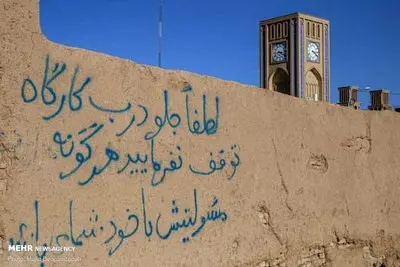 لطفاً جلو درب کارگاه
توقف نفرمایید هر گونه
مسولیتش با خود شما
MEHR NEWSAGENCY